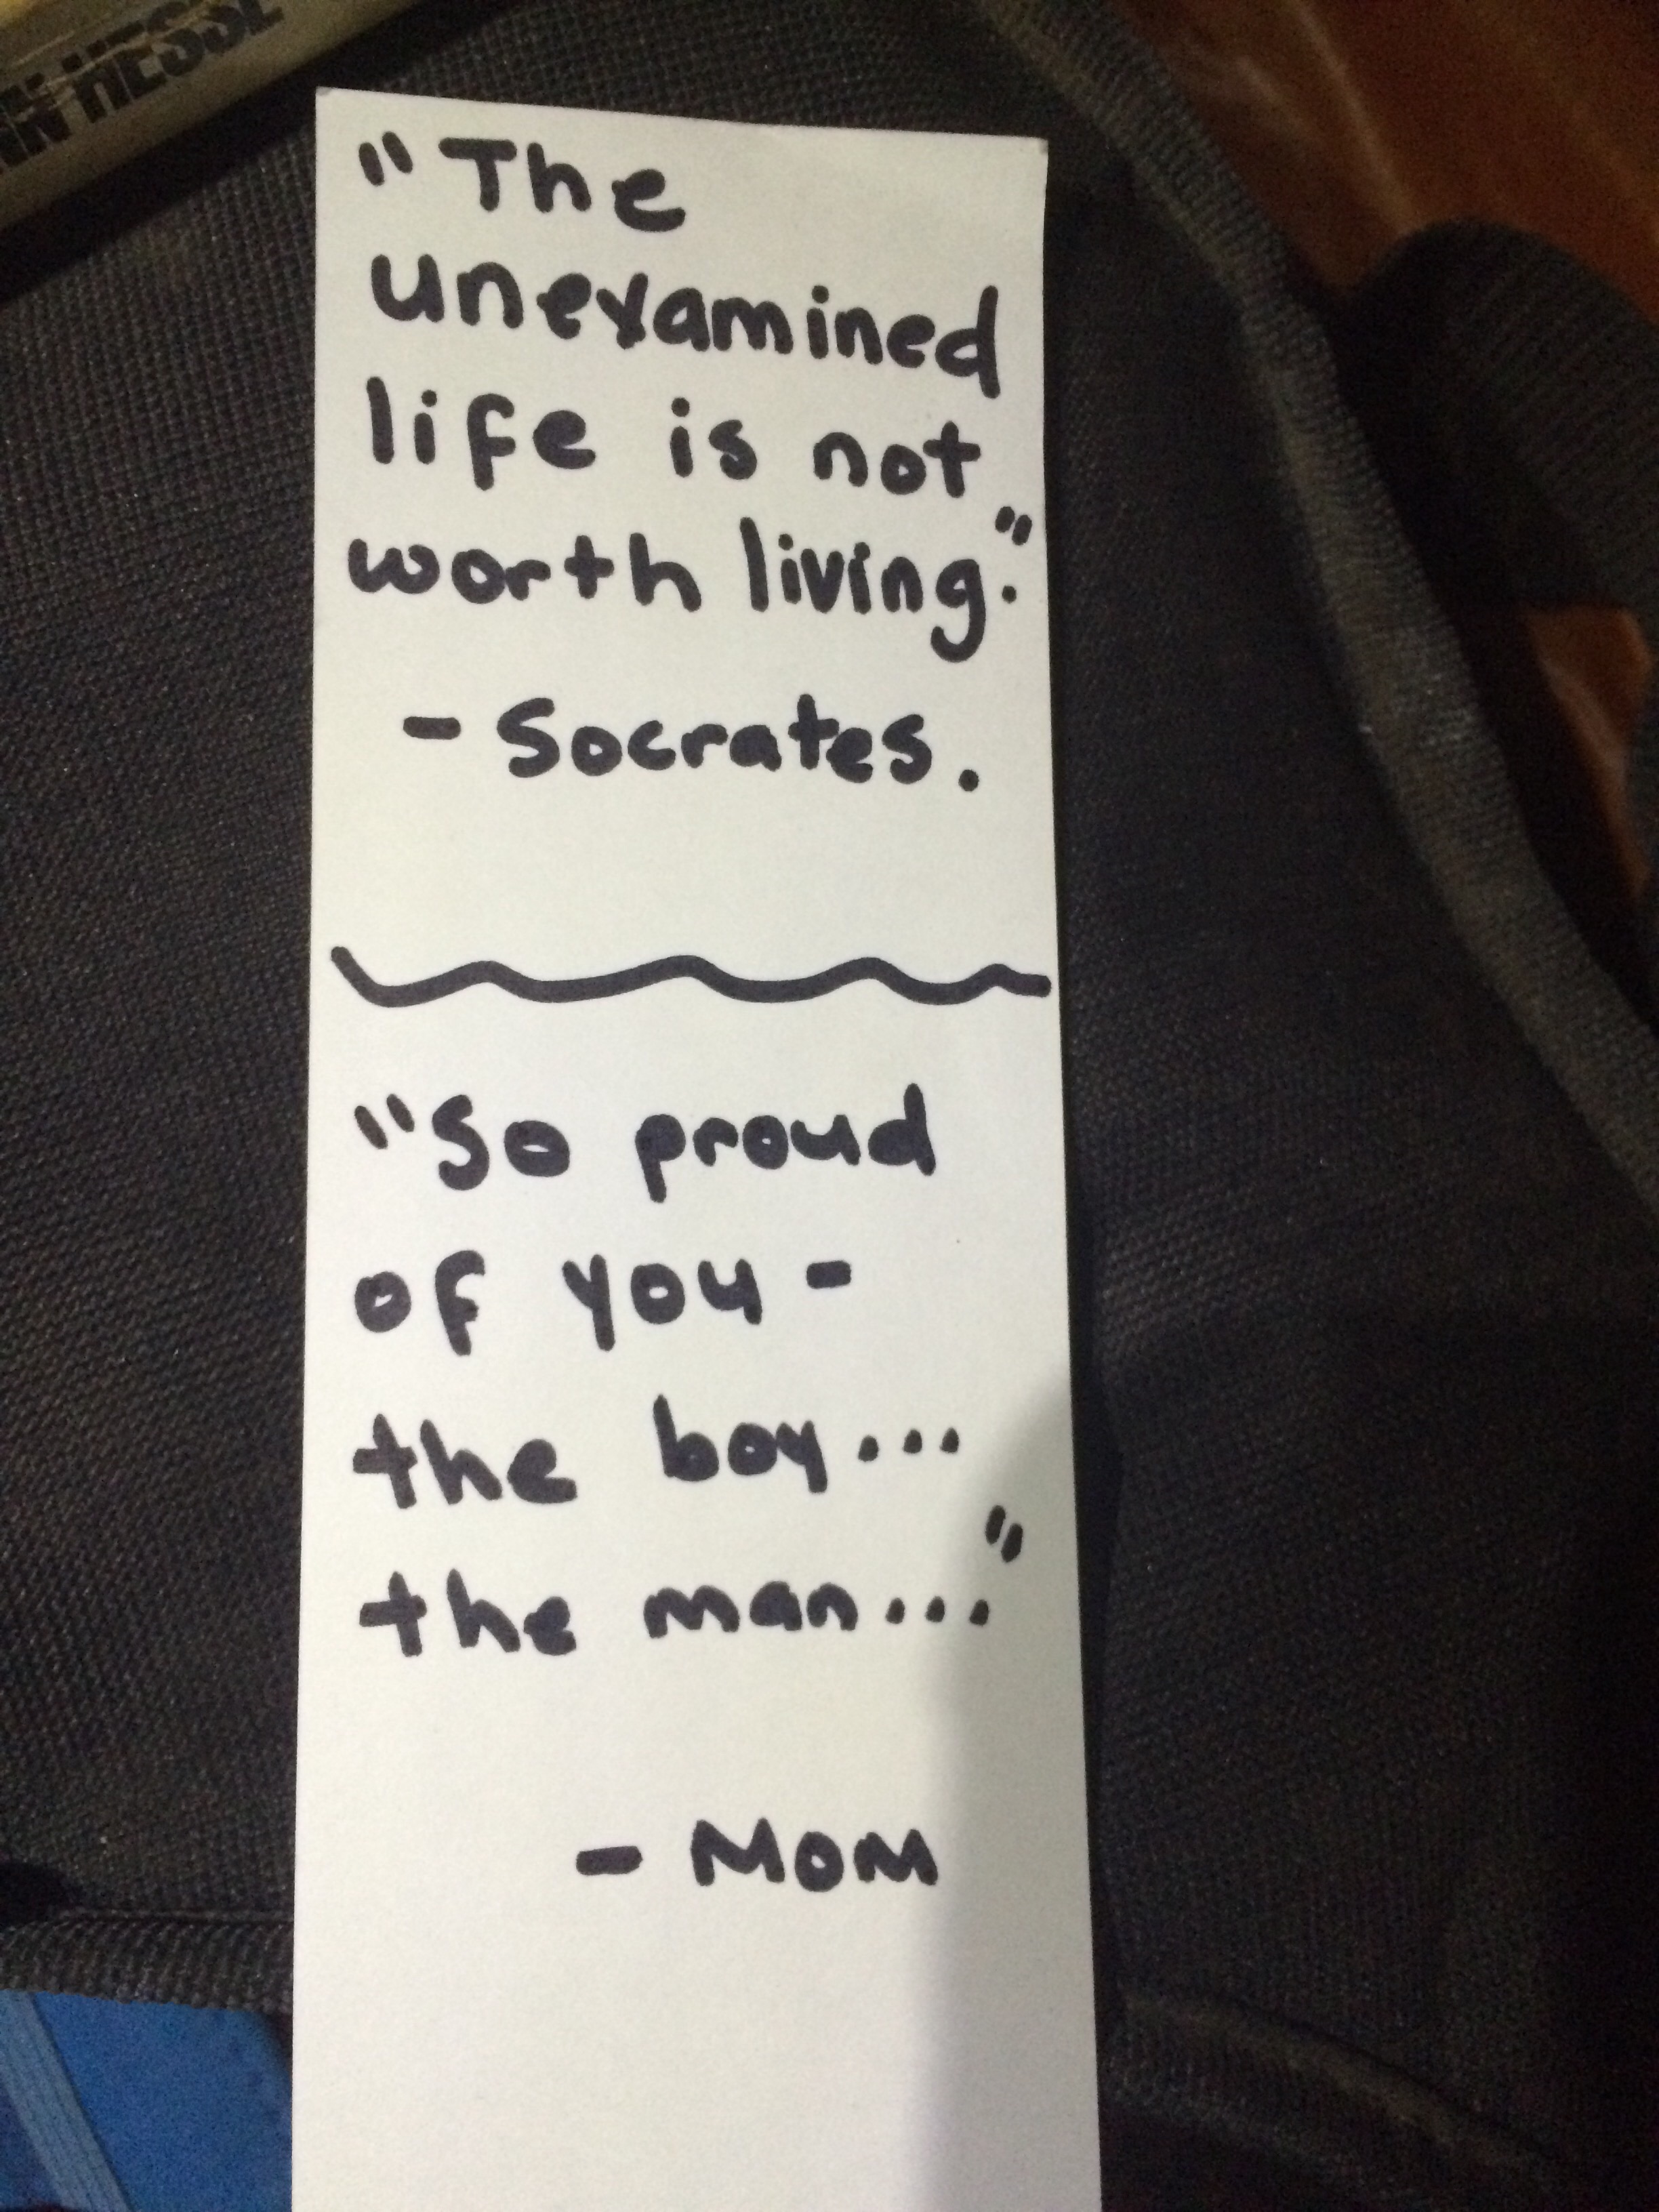 N HESSE
"The
unexamined
life is not
worth living."
- Socrates.
"So proud
of you -
the boy...
the man..."
- Mom